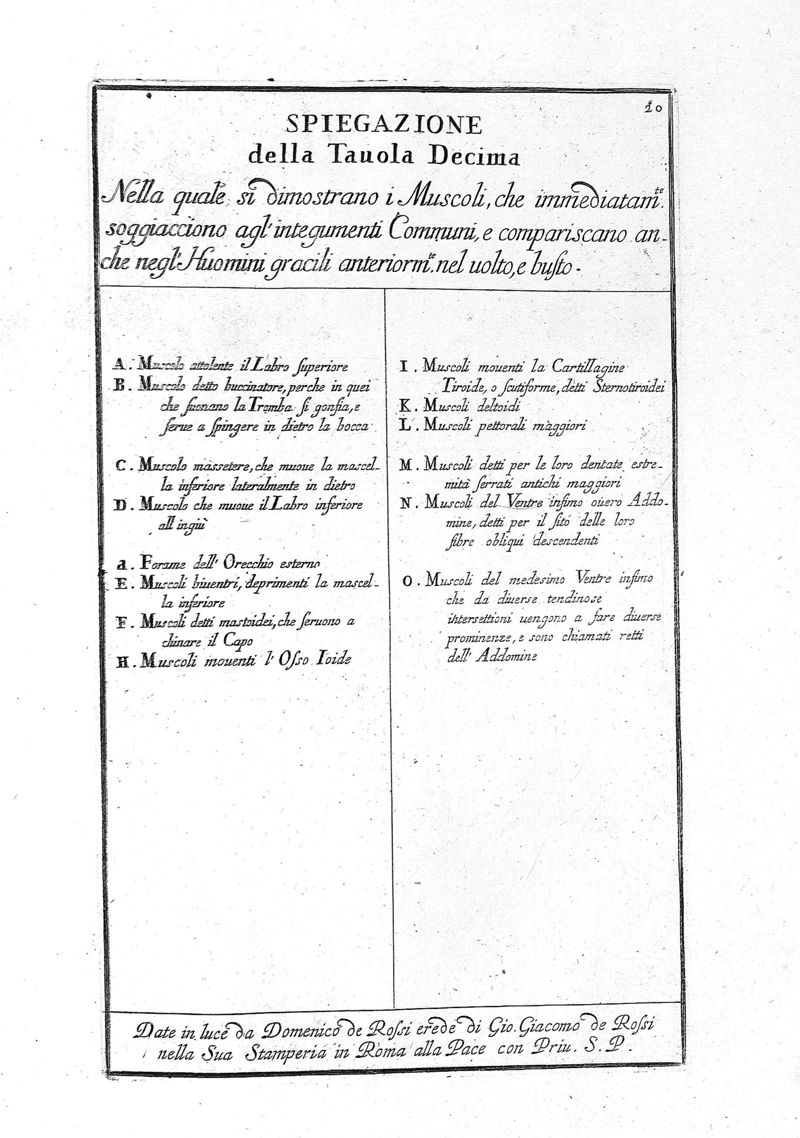 10
SPIEGAZIONE
della Tauola Decima
Nella quale si dimostrano i Muscoli, che immediatam.te
soggiacciono agl'integumenti Communi, e compariscano an-
che negl'Huomini gracili anteriorm.te nel uolto, e busto.
A. Muscolo attolente il Labro superiore
B. Muscolo detto buccinatore, perche in quei
che suonano la Tromba si gonfia, e
serue a spingere in dietro la bocca
C. Muscolo massetere, che muoue la mascel-
la inferiore lateralmente in dietro
D. Muscolo che muoue il Labro inferiore
all'ingiù
a. Forame dell'Orecchio esterno
E. Muscoli biuentri, deprimenti la mascel-
la inferiore
F. Muscoli detti mastoidei, che seruono a
chinare il Capo
H. Muscoli mouenti l'Osso Ioide
I. Muscoli mouenti la Cartillagine
Tiroide, o scutiforme, detti Sternotiroidei
K. Muscoli deltoidi
L. Muscoli pettorali maggiori
M. Muscoli detti per le loro dentate estre-
mità serrati antichi maggiori
N. Muscoli del Ventre infimo ouero Addo-
mine, detti per il sito delle loro
fibre obliqui descendenti
O. Muscoli del medesimo Ventre infimo
che da diuerse tendinose
intersettioni uengono a fare diuerse
prominenze, e sono chiamati retti
dell'Addomine
Date in luce da Domenico de Rossi erede di Gio. Giacomo de Rossi
nella Sua Stamperia in Roma alla Pace con Priu. S. P.